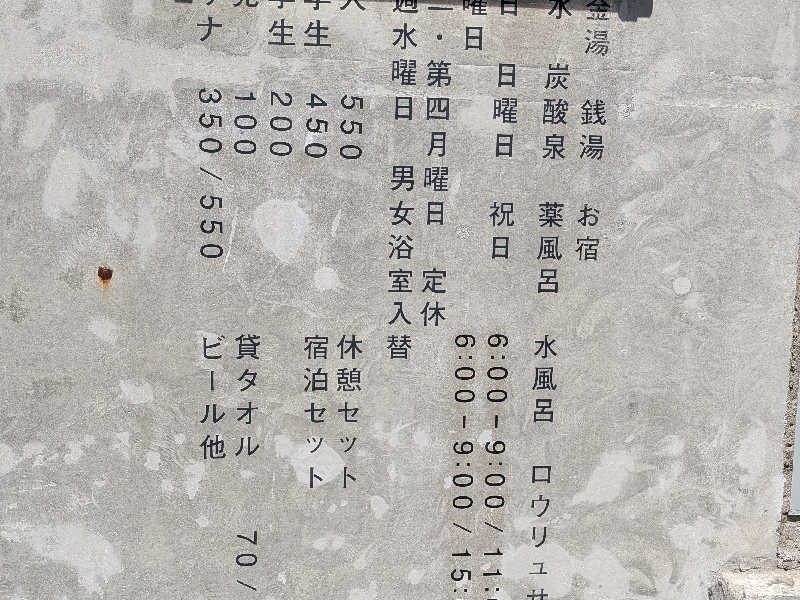 金湯 銭湯 お宿
水 炭酸泉 薬風呂 水風呂 ロウリュサ
日 日曜日 祝日 6:00-9:00/11:
曜日 6:00-9:00/15:
二・第四月曜日 定休
週水曜日 男女浴室入替
人 550 休憩セット
学生 450 宿泊セット
学生 200
児 100 貸タオル 70/
ウナ 350/550 ビール他